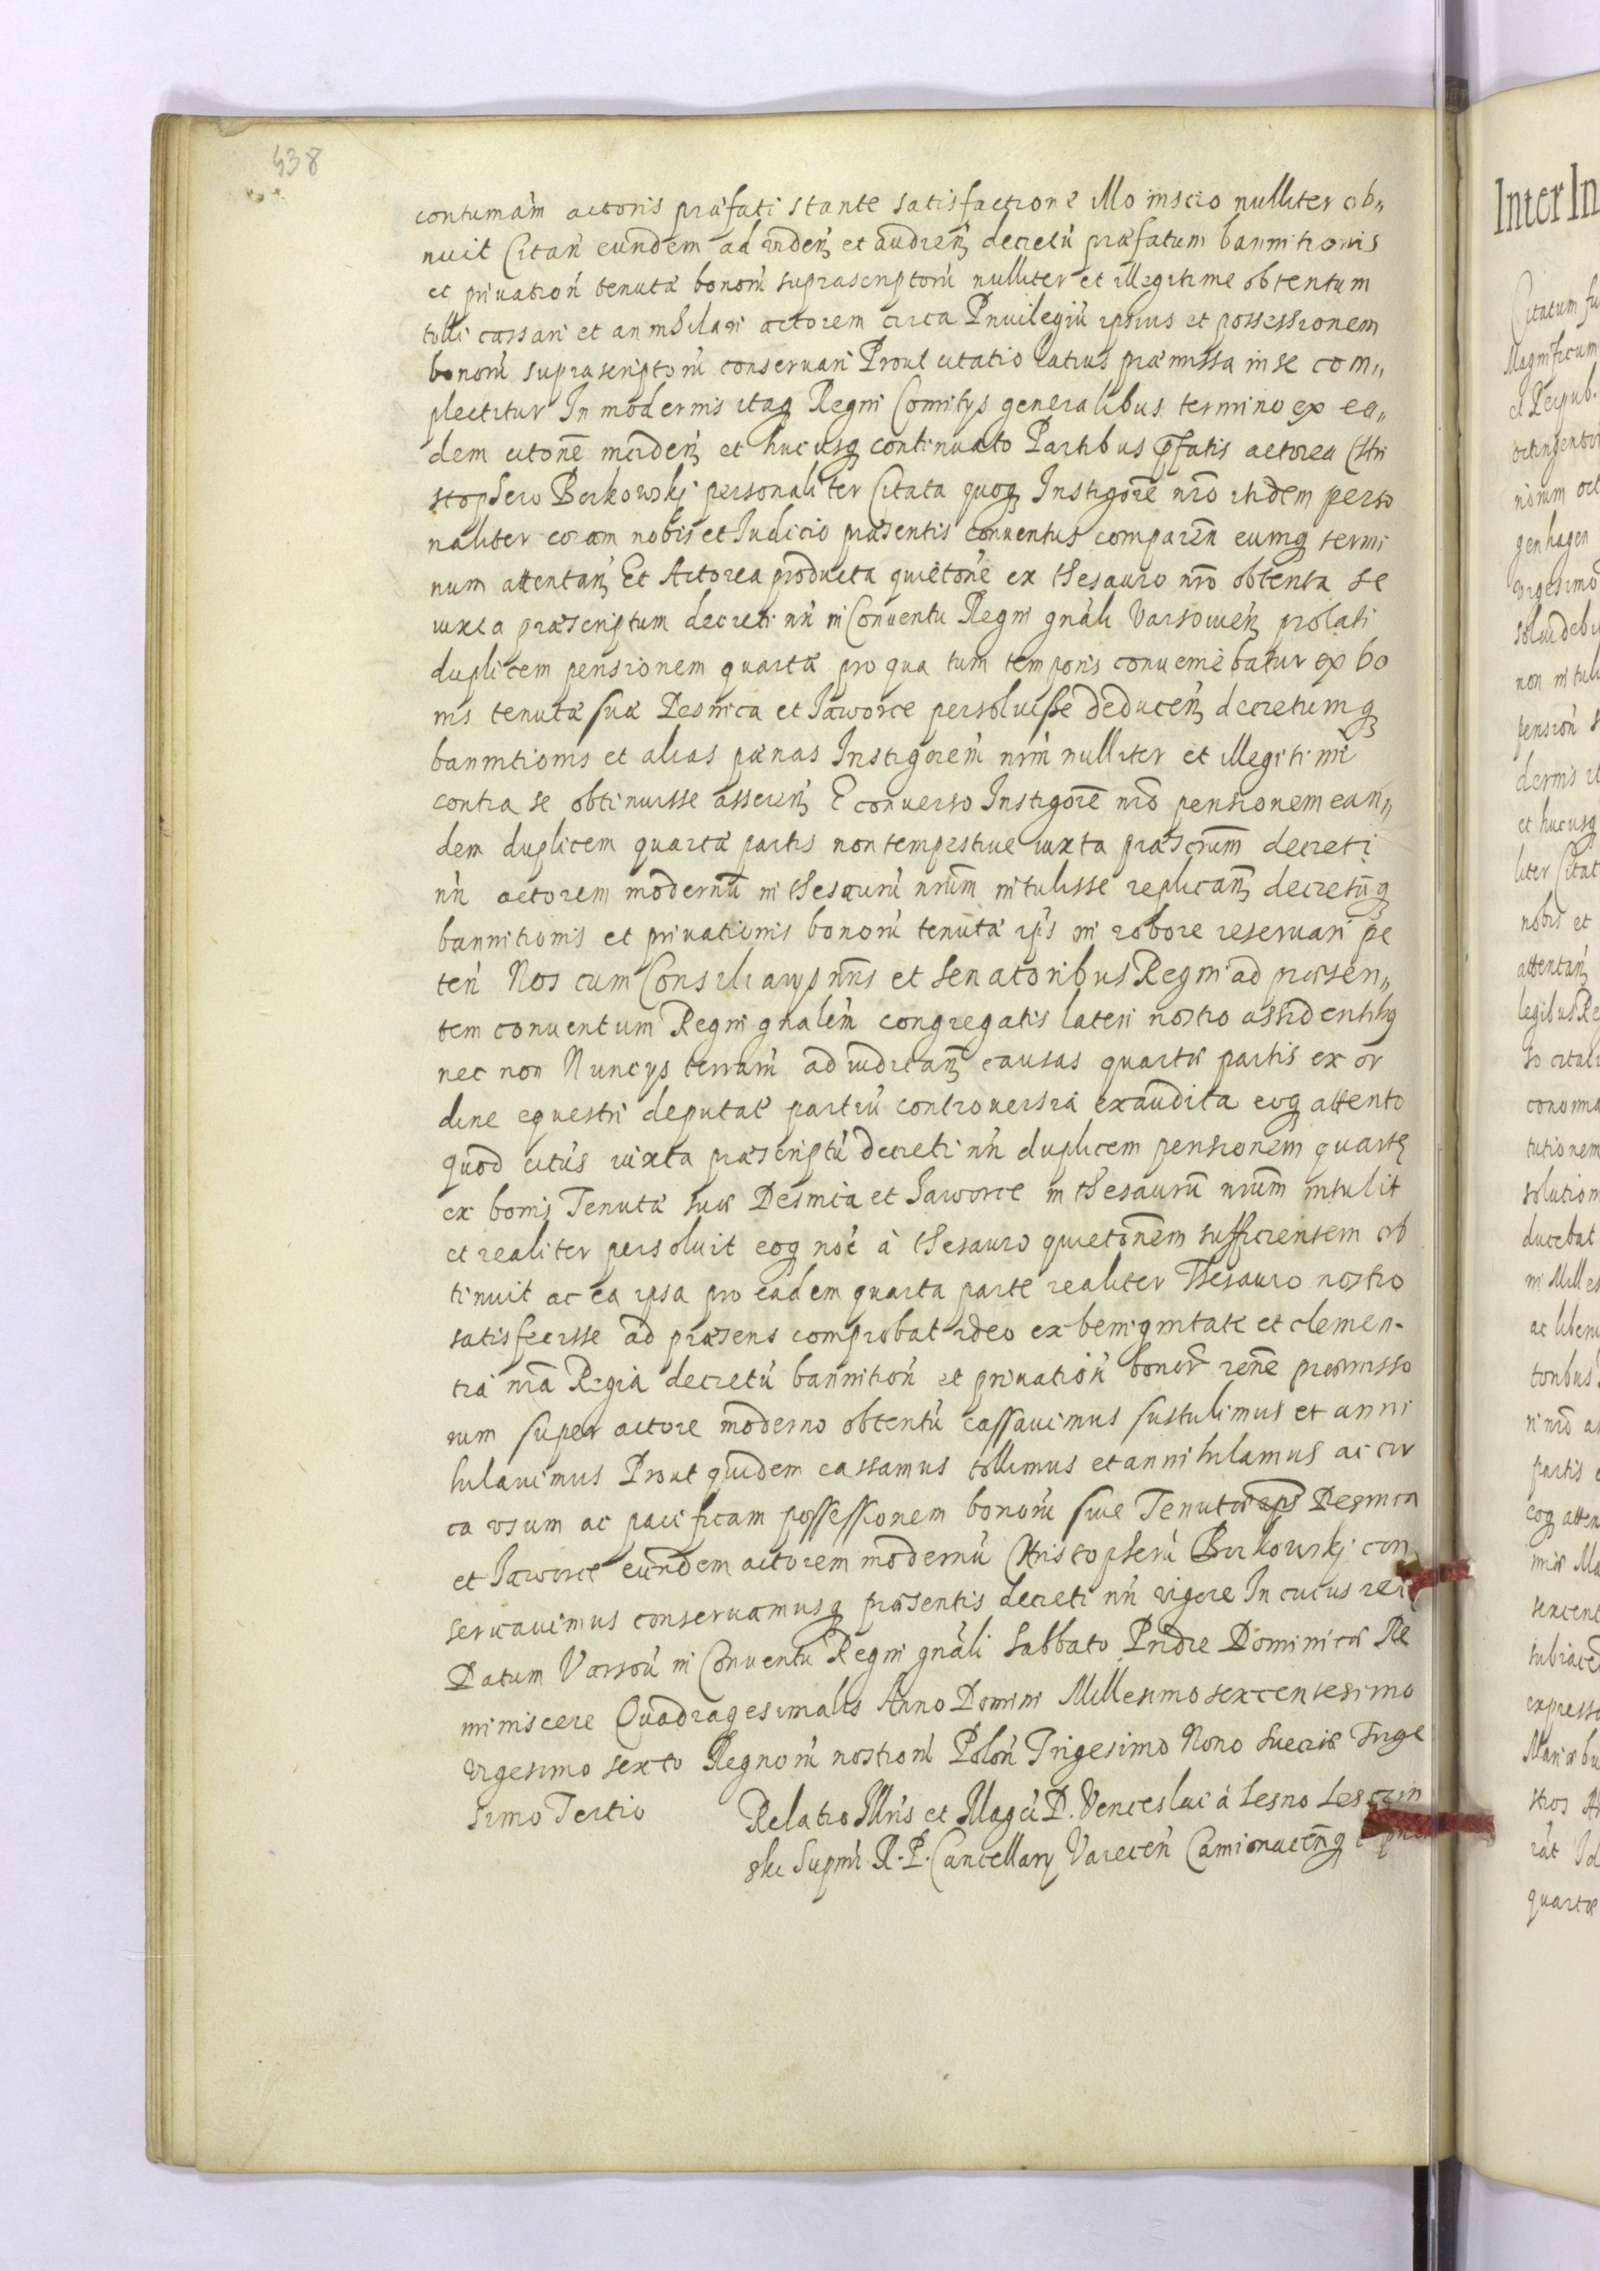 438
contumám actoris præfati stante satisfactione illo inscio nulliter ob„
nuit Citań eundem ad videń et audień decretú præfatum bannitionis
et priuationi tenutæ bonorú suprascriptorú nulliter et illegitime obtentum
tolli cassari et annihilari actorem circa Priuilegiú ipsius et possessionem
bonorú suprascriptorú conseruari Prout citatio latius præmissa in se com„
plectitur In modernis itaq Regni Comitys generalibus termino ex ea„
dem citone incideń et hucusq continuato Partibus pfatis actorea Chri
stophero Borkowskj personaliter Citata quoq Instigore nro itidem perso
naliter coram nobis et Iudicio præsentis conuentus compareń eumq termi
num attentań Et Actorea producta quietone ex thesauro nro obtenta se
iuxta præscriptum decreti nri in Conuentu Regni gnáli Varsouień prolati
duplicem pensionem quartæ pro qua tum temporis conueniebatur ex bo
nis tenutæ suæ Desnica et Jaworce persoluisse deduceń decretumq
bannitionis et alias pænas Instigorem nrm nulliter et illegitime
contra se obtinuisse asserień E conuerso Instigore nro pensionem ean„
dem duplicem quartæ partis non tempestiue iuxta præscrum decreti
nri actorem modernú in thesaurú nrum intulisse replicań decretúq
bannitionis et priuationis bonorú tenutæ ips in robore reseruari pe
teń Nos cum Consiliarys nris et Senatoribus Regni ad præsen„
tem conuentum Regni gnalem congregatis lateri nostro assidentibq
nec non Nuncys terrarú ad iudicań causas quartæ partis ex or
dine equestri deputať partiú controuersia exaudita eoq attento
quod citús iuxta præscriptú decreti nri duplicem pensionem quartę
ex bonis Tenutæ suæ Desnica et Jaworce in thesaurú nrum intulit
et realiter persoluit eoq noe à thesauro quietonem sufficientem ob
tinuit ac ea ipsa pro eadem quarta parte realiter Thesauro nostro
satisfecisse ad præsens comprobat ideo ex benignitate et clemen-
tia nra Regia decretú bannitioń et priuatioń bonor rone præmisso
rum super actore moderno obtentú cassauimus sustulimus et anni
hilauimus Prout quidem cassamus tollimus et annihilamus ac cir
ca vsum ac pacificam possessionem bonorú siue Tenutæ ips Desnica
et Jaworce eundem actorem modernú Christopherú Borkowskj con
seruauimus conseruamusq præsentis decreti nri vigore In cuius rei
Datum Varsou in Conuentu Regni gnáli Sabbato Pridie Dominicæ Re
miniscere Quadragesimalis Anno Domini Millesimo sexcentesimo
vigesimo sexto Regnorú nostrorú Polon Trigesimo Nono Sueciæ Trige
simo Tertio
Relatio Illris et Magci D. Venceslai á Lesno Leszczin
ski Supmi R. P. Cancellary Varecen Camionacenq